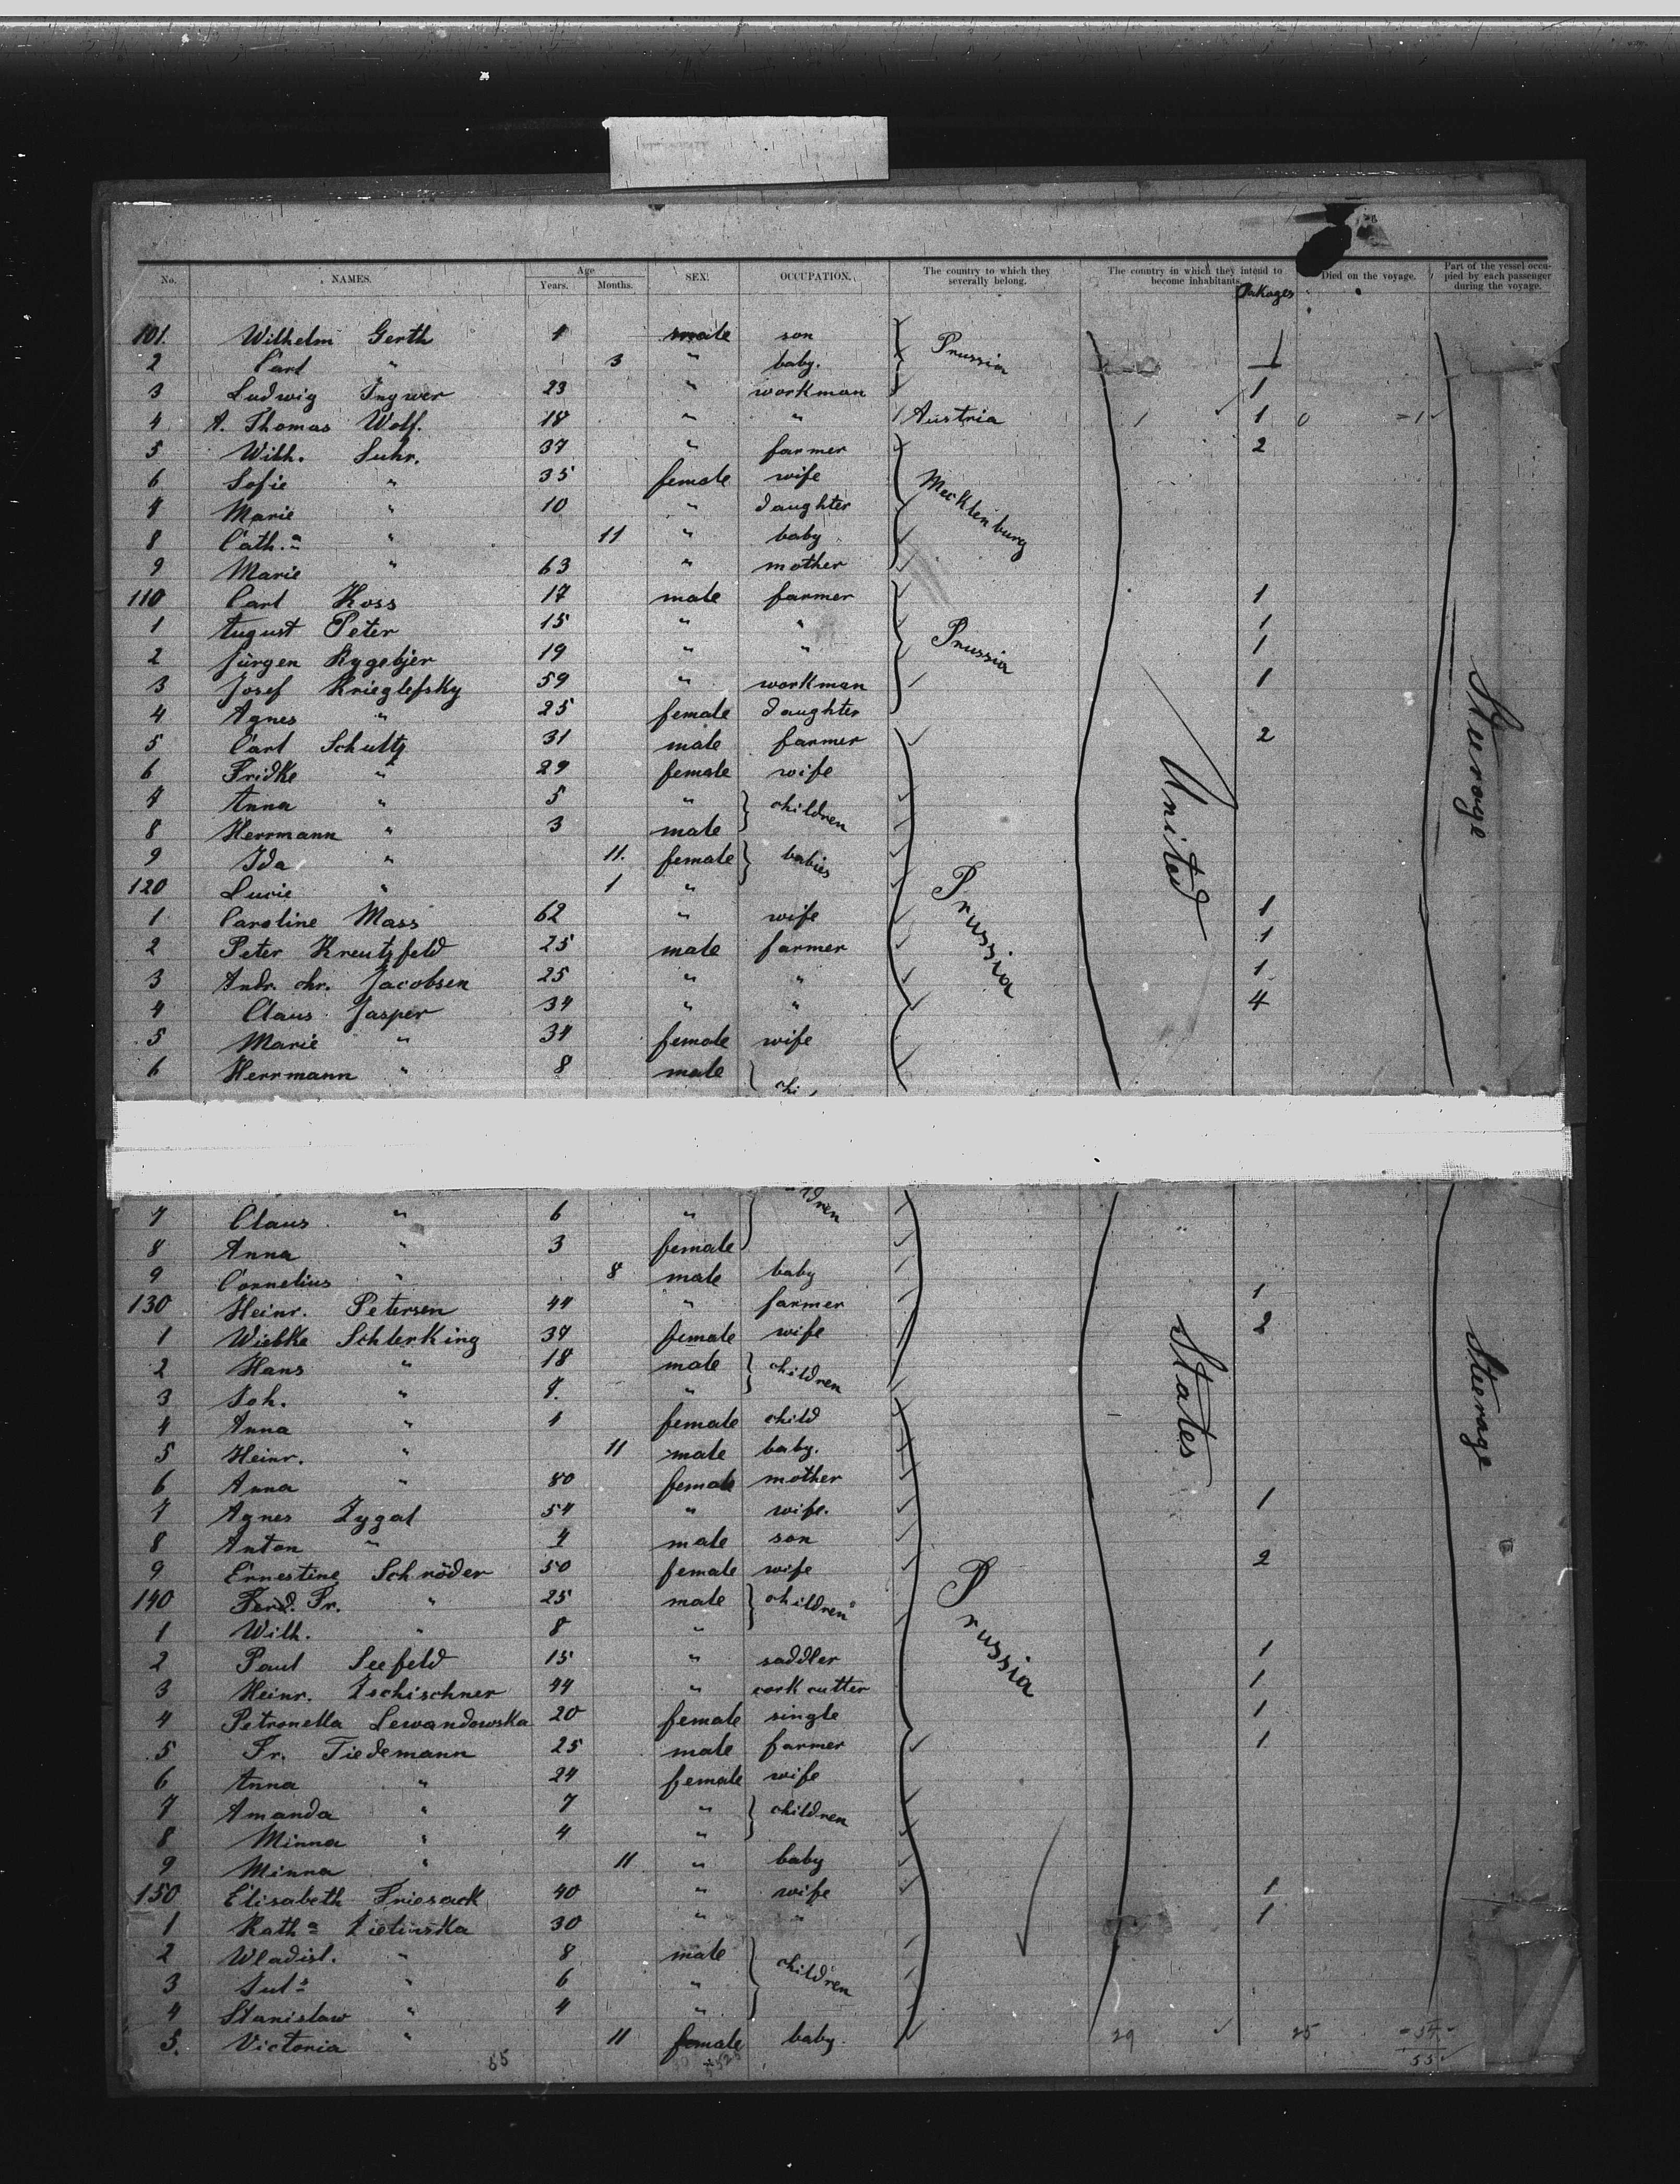 No. NAMES. Age Years. Months. SEX. OCCUPATION. The country to which they severally belong. The country in which they intend to become inhabitants. Pakages Died on the voyage. Part of the vessel occupied by each passenger during the voyage.
101. Wilhelm Gerth 4 male son Prussia 1
2 Carl " 3 " baby.
3 Ludwig Ingwer 23 " workman 1
4 A. Thomas Wolf. 18 " " 1 Austria 1 1 0 =1
5 Wilh. Suhr. 37 " farmer Mecklenburg 2
6 Sofie " 35 female wife
7 Marie " 10 " daughter
8 Cath.a " 11 " baby
9 Marie " 63 " mother
110 Carl Koss 17 male farmer Prussia 1
1 August Peter 15 " " 1
2 Jürgen Rygebjer 19 " " 1
3 Josef Krieglefsky 59 " workman 1
4 Agnes " 25 female daughter
5 Carl Schultz 31 male farmer Prussia 2
6 Fridke " 29 female wife
7 Anna " 5 " children
8 Herrmann " 3 male
9 Ida " 11. female babies
120 Lucie " 1 "
1 Caroline Mass 62 " wife 1
2 Peter Kreutzfeld 25 male farmer 1
3 Andr. chr. Jacobsen 25 " " 1
4 Claus Jasper 34 " " 4
5 Marie " 34 female wife
6 Herrmann " 8 male children
United
Steerage
7 Claus " 6 "
8 Anna " 3 female
9 Cornelius " 8 male baby
130 Heinr. Petersen 44 " farmer 1
1 Wiebke Schlerking 37 female wife 2
2 Hans " 18 male children
3 Joh. " 7. "
4 Anna " 4 female child
5 Heinr. " 11 male baby.
6 Anna " 80 female mother
7 Agnes Zygal 54 " wife. 1
8 Anton " 4 male son
9 Ernestine Schröder 50 female wife Prussia 2
140 Ferd. Fr. " 25 male children
1 Wilh. " 8 "
2 Paul Seefeld 15 " saddler 1
3 Heinr. Zschischner 44 " cork cutter 1
4 Petronella Lewandowska 20 female single 1
5 Fr. Tiedemann 25 male farmer 1
6 Anna " 24 female wife
7 Amanda " 7 " children
8 Minna " 4 "
9 Minna " 11 " baby
150 Elisabeth Friesack 40 " wife 1
1 Katha Zielinska 30 " " 1
2 Wladisl. " 8 male children
3 Jul.s " 6 "
4 Stanislaw " 4 "
5. Victoria " 11 female baby.
States
Steerage
55 29 25 54
55